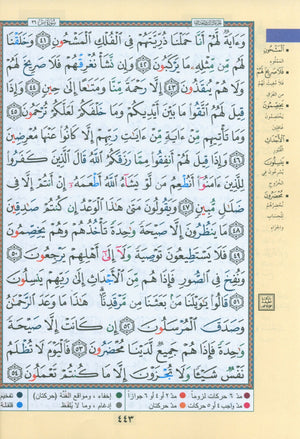 وَءَايَةٌ لَّهُمْ أَنَّا حَمَلْنَا ذُرِّيَّتَهُمْ فِي الْفُلْكِ الْمَشْحُونِ ٤١ وَخَلَقْنَا
لَهُم مِّن مِّثْلِهِ مَا يَرْكَبُونَ ٤٢ وَإِن نَّشَأْ نُغْرِقْهُمْ فَلَا صَرِيخَ لَهُمْ
وَلَا هُمْ يُنقَذُونَ ٤٣ إِلَّا رَحْمَةً مِّنَّا وَمَتَاعًا إِلَى حِينٍ ٤٤ وَإِذَا
قِيلَ لَهُمُ اتَّقُوا مَا بَيْنَ أَيْدِيكُمْ وَمَا خَلْفَكُمْ لَعَلَّكُمْ تُرْحَمُونَ ٤٥
وَمَا تَأْتِيهِم مِّنْ ءَايَةٍ مِّنْ ءَايَاتِ رَبِّهِمْ إِلَّا كَانُوا عَنْهَا مُعْرِضِينَ
٤٦ وَإِذَا قِيلَ لَهُمْ أَنفِقُوا مِمَّا رَزَقَكُمُ اللَّهُ قَالَ الَّذِينَ كَفَرُوا
لِلَّذِينَ ءَامَنُوا أَنُطْعِمُ مَن لَّوْ يَشَاءُ اللَّهُ أَطْعَمَهُ إِنْ أَنتُمْ إِلَّا فِي
ضَلَالٍ مُّبِينٍ ٤٧ وَيَقُولُونَ مَتَى هَذَا الْوَعْدُ إِن كُنتُمْ صَادِقِينَ
٤٨ مَا يَنظُرُونَ إِلَّا صَيْحَةً وَاحِدَةً تَأْخُذُهُمْ وَهُمْ يَخِصِّمُونَ
٤٩ فَلَا يَسْتَطِيعُونَ تَوْصِيَةً وَلَا إِلَى أَهْلِهِمْ يَرْجِعُونَ ٥٠
وَنُفِخَ فِي الصُّورِ فَإِذَا هُم مِّنَ الْأَجْدَاثِ إِلَى رَبِّهِمْ يَنسِلُونَ
٥١ قَالُوا يَاوَيْلَنَا مَن بَعَثَنَا مِن مَّرْقَدِنَا هَذَا مَا وَعَدَ الرَّحْمَنُ
وَصَدَقَ الْمُرْسَلُونَ ٥٢ إِن كَانَتْ إِلَّا صَيْحَةً
وَاحِدَةً فَإِذَا هُمْ جَمِيعٌ لَّدَيْنَا مُحْضَرُونَ ٥٣ فَالْيَوْمَ لَا تُظْلَمُ
نَفْسٌ شَيْئًا وَلَا تُجْزَوْنَ إِلَّا مَا كُنتُمْ تَعْمَلُونَ ٥٤
الْمَشْحُونِ
فَلَا صَرِيخَ لَهُمْ
يَخِصِّمُونَ
الْأَجْدَاثِ
يَنسِلُونَ
مُحْضَرُونَ
مد ٦ حركات لزوماً مد ٢ أو ٤ أو ٦ جوازاً إخفاء، ومواقع الغنّة (حركتان) تفخيم
مد واجب ٤ أو ٥ حركات مد حركتان إدغام، وما لا يلفظ قلقلة
٤٤٣